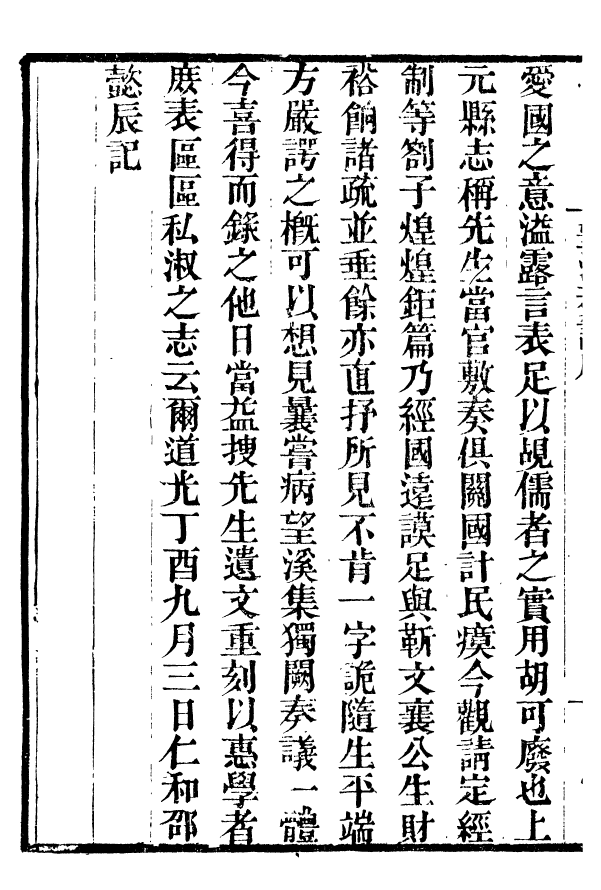 愛國之意溢露言表足以覘儒者之實用胡可廢也上
元縣志稱先生當官敷奏俱關國計民瘼今觀請定經
制等劄子煌煌鉅篇乃經國遠謨足與靳文襄公生財
裕餉諸疏並垂餘亦直抒所見不肯一字詭隨生平端
方嚴諤之槪可以想見曩嘗病望溪集獨闕奏議一體
今喜得而錄之他日當益搜先生遺文重刻以惠學者
庻表區區私淑之志云爾道光丁酉九月三日仁和邵
懿辰記